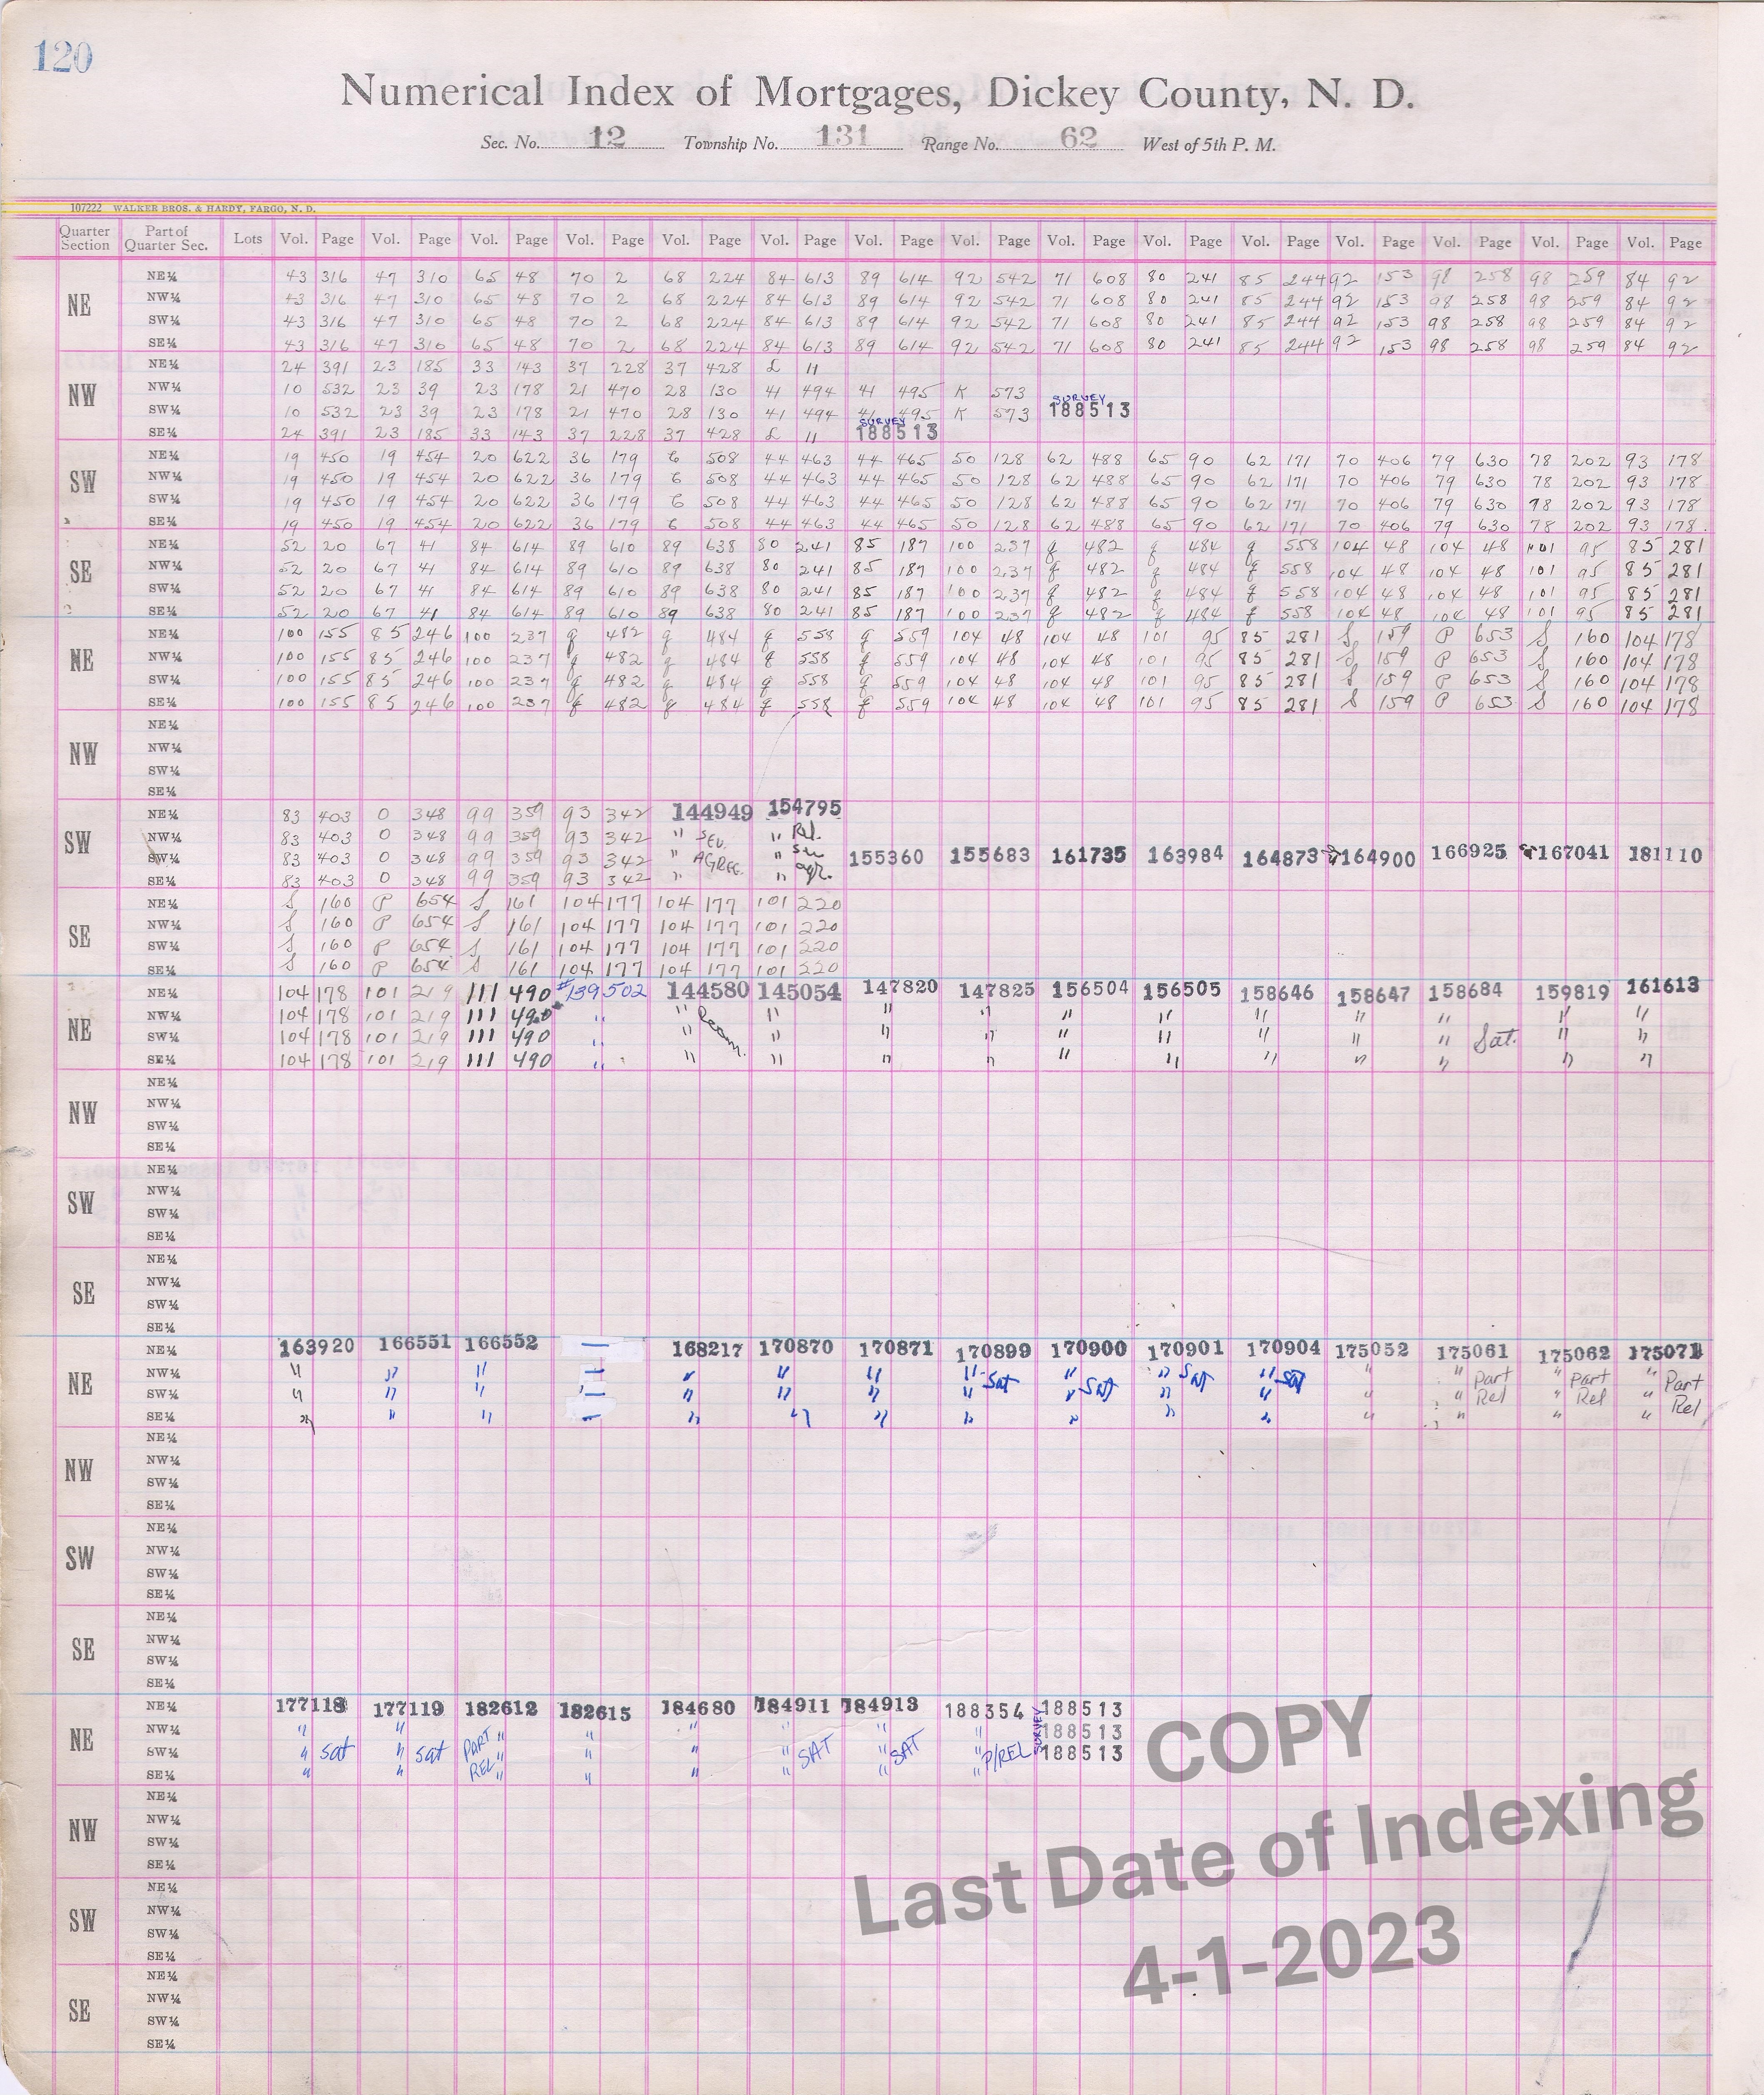 120
Numerical Index of Mortgages, Dickey County, N. D.
Sec. No. 12 Township No. 131 Range No. 62 West of 5th P. M.
107222 WALKER BROS. & HARDY, FARGO, N. D.
Quarter Section Part of Quarter Sec. Lots Vol. Page Vol. Page Vol. Page Vol. Page Vol. Page Vol. Page Vol. Page Vol. Page Vol. Page Vol. Page Vol. Page Vol. Page Vol. Page Vol. Page Vol. Page
NE
NE¼ 43 316 47 310 65 48 70 2 68 224 84 613 89 614 92 542 71 608 80 241 85 244 92 153 98 258 98 259 84 92
NW¼ 43 316 47 310 65 48 70 2 68 224 84 613 89 614 92 542 71 608 80 241 85 244 92 153 98 258 98 259 84 92
SW¼ 43 316 47 310 65 48 70 2 68 224 84 613 89 614 92 542 71 608 80 241 85 244 92 153 98 258 98 259 84 92
SE¼ 43 316 47 310 65 48 70 2 68 224 84 613 89 614 92 542 71 608 80 241 85 244 92 153 98 258 98 259 84 92
NW
NE¼ 24 391 23 185 33 143 37 228 37 428 £ 11
NW¼ 10 532 23 39 23 178 21 470 28 130 41 494 41 495 K 573
SURVEY
SW¼ 10 532 23 39 23 178 21 470 28 130 41 494 41 495 K 573 188513
SURVEY
SE¼ 24 391 23 185 33 143 37 228 37 428 £ 11 188513
SW
NE¼ 19 450 19 454 20 622 36 179 6 508 44 463 44 465 50 128 62 488 65 90 62 171 70 406 79 630 78 202 93 178
NW¼ 19 450 19 454 20 622 36 179 6 508 44 463 44 465 50 128 62 488 65 90 62 171 70 406 79 630 78 202 93 178
SW¼ 19 450 19 454 20 622 36 179 6 508 44 463 44 465 50 128 62 488 65 90 62 171 70 406 79 630 98 202 93 178
SE¼ 19 450 19 454 20 622 36 179 6 508 44 463 44 465 50 128 62 488 65 90 62 171 70 406 79 630 78 202 93 178.
SE
NE¼ 52 20 67 41 84 614 89 610 89 638 80 241 85 187 100 237 q 482 q 484 q 558 104 48 104 48 101 95 85 281
NW¼ 52 20 67 41 84 614 89 610 89 638 80 241 85 187 100 237 q 482 q 484 q 558 104 48 104 48 101 95 85 281
SW¼ 52 20 67 41 84 614 89 610 89 638 80 241 85 187 100 237 q 482 q 484 q 558 104 48 104 48 101 95 85 281
SE¼ 52 20 67 41 84 614 89 610 89 638 80 241 85 187 100 237 q 482 q 484 q 558 104 48 104 48 101 95 85 281
NE
NE¼ 100 155 85 246 100 237 q 482 q 484 q 558 q 559 104 48 104 48 101 95 85 281 S 159 P 653 S 160 104 178
NW¼ 100 155 85 246 100 237 q 482 q 484 q 558 q 559 104 48 104 48 101 95 85 281 S 159 P 653 S 160 104 178
SW¼ 100 155 85 246 100 237 q 482 q 484 q 558 q 559 104 48 104 48 101 95 85 281 S 159 P 653 S 160 104 178
SE¼ 100 155 85 246 100 237 q 482 q 484 q 558 q 559 104 48 104 48 101 95 85 281 S 159 P 653 S 160 104 178
NW
NE¼
NW¼
SW¼
SE¼
SW
NE¼ 83 403 0 348 99 359 93 342 144949 154795
NW¼ 83 403 0 348 99 359 93 342 " SEV. " Rel.
SW¼ 83 403 0 348 99 359 93 342 " AGREE. " 155360 155683 161735 163984 164873 164900 166925 167041 181110
SE¼ 83 403 0 348 99 359 93 342 " " agr.
SE
NE¼ S 160 P 654 S 161 104 177 104 177 101 220
NW¼ S 160 P 654 S 161 104 177 104 177 101 220
SW¼ S 160 P 654 S 161 104 177 104 177 101 220
SE¼ S 160 P 654 S 161 104 177 104 177 101 220
NE
NE¼ 104 178 101 219 111 490 #139502 144580 145054 147820 147825 156504 156505 158646 158647 158684 159819 161613
NW¼ 104 178 101 219 111 490 " " " " " " " " " " " "
SW¼ 104 178 101 219 111 490 " " " " " " " " " " Sat. " "
SE¼ 104 178 101 219 111 490 " " " " " " " " " " " "
NW
NE¼
NW¼
SW¼
SE¼
SW
NE¼
NW¼
SW¼
SE¼
SE
NE¼
NW¼
SW¼
SE¼
NE
NE¼ 163920 166551 166552 — 168217 170870 170871 170899 170900 170901 170904 175052 175061 175062 175071
NW¼ " " " — " " " " " " Sat " " " Part " Part " Part
SW¼ " " " — " " " " Sat " Sat " " Sat " " Rel " Rel " Rel
SE¼ " " " — " " " " " " " " " " "
NW
NE¼
NW¼
SW¼
SE¼
SW
NE¼
NW¼
SW¼
SE¼
SE
NE¼
NW¼
SW¼
SE¼
NE
NE¼ 177118 177119 182612 182615 184680 184911 184913 188354 SURVEY 188513
NW¼ " " PART " " " " " " 188513
SW¼ " Sat " Sat " " " " SAT " SAT " P/REL 188513
SE¼ " " REL " " " " " "
NW
NE¼
NW¼
SW¼
SE¼
SW
NE¼
NW¼
SW¼
SE¼
SE
NE¼
NW¼
SW¼
SE¼
COPY
Last Date of Indexing
4-1-2023